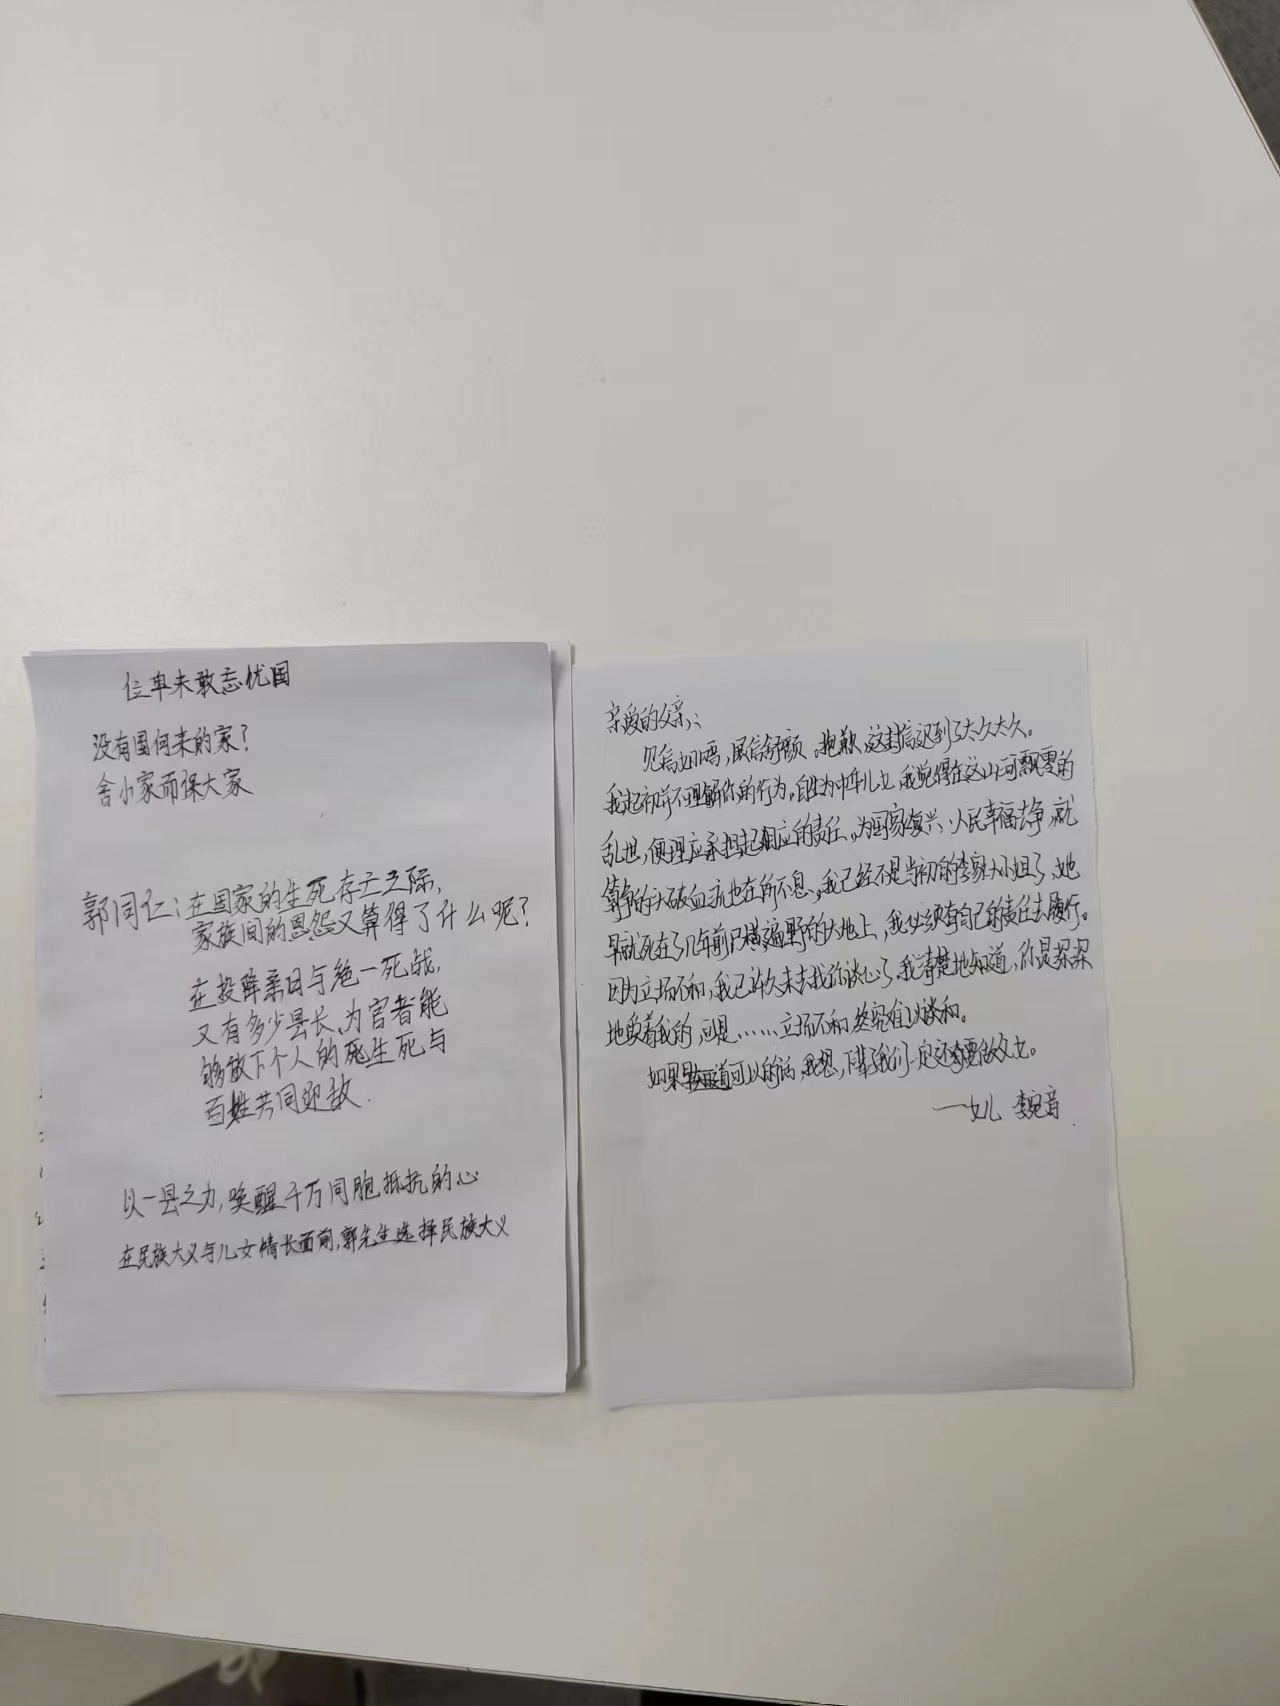 位卑未敢忘忧国
没有国何来的家？
舍小家而保大家
郭同仁：在国家的生死存亡之际，
家族间的恩怨又算得了什么呢？
在投降柔日与绝一死战，
又有多少县长、为官者能
够放下个人的死生死与
百姓共同迎敌．
以一县之力，唤醒千万同胞抵抗的心
在民族大义与儿女情长面前，郭先生选择民族大义
亲爱的父亲：
见信如晤，展信舒颜。抱歉，这封信迟到了太久太久。
我起初并不理解你的行为。自生为中华儿女，我觉得在这山河飘零的
乱世，便理应承担起相应的责任。为国家复兴、人民幸福去争，就
算争的头破血流也在所不惜。我已经不是当初的李家大小姐了，她
早就死在了几年前尸横遍野的大地上，我必须有自己的责任去履行。
因为立场不和，我已许久未去找你谈心了，我清楚地知道，你是深深
地爱着我的，可是……立场不和终究难以谈和。
如果可以的话，我想，下辈子我们一定还要做父女。
——女儿 李婉音